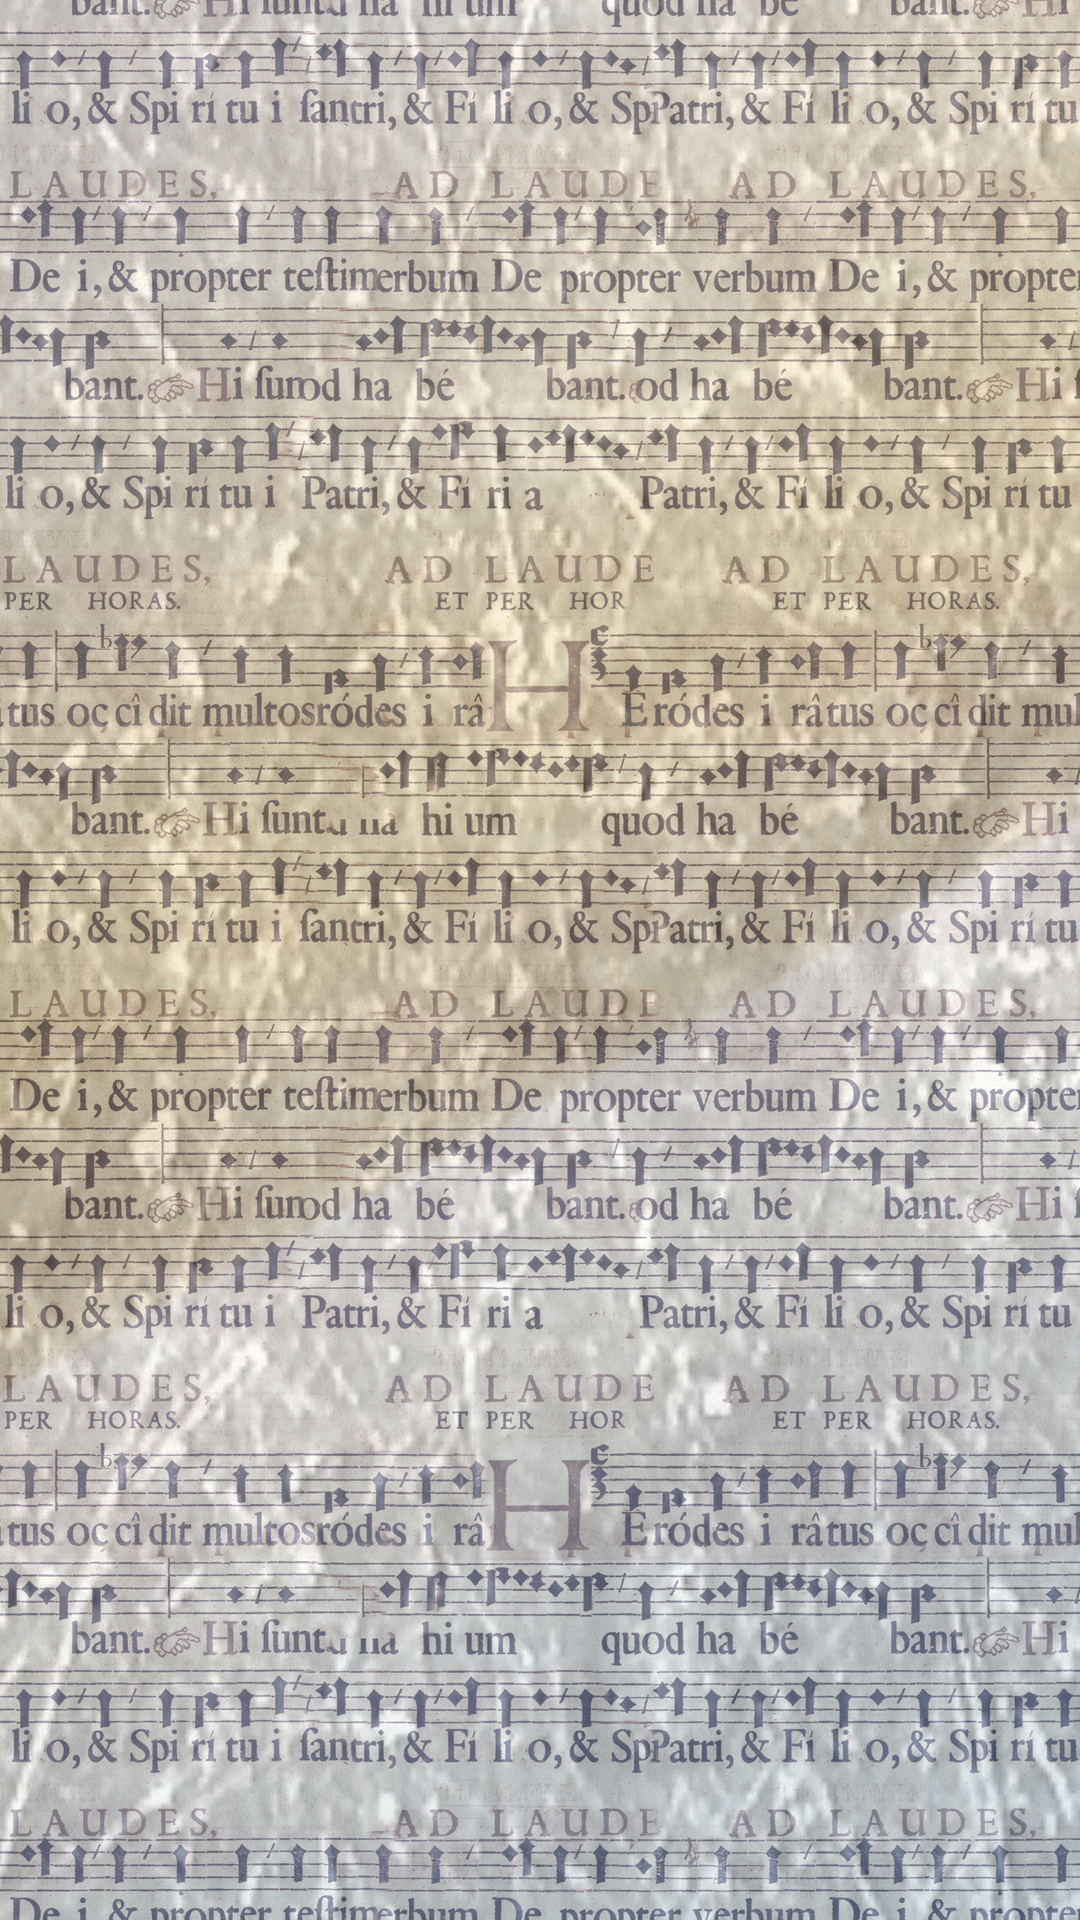 bant. Hi ha hi um quod ha bé bant. Hi
li o, & Spi rí tu i ſanctri, & Fí li o, & SpPatri, & Fí li o, & Spi rí tu
LAUDES, AD LAUDE AD LAUDES,
De i, & propter teſtimerbum De propter verbum De i, & propter
bant. Hi ſunod ha bé bant. od ha bé bant. Hi
li o, & Spi rí tu i Patri, & Fí ri a Patri, & Fí li o, & Spi rí tu
LAUDES, AD LAUDE AD LAUDES,
PER HORAS. ET PER HOR ET PER HORAS.
tus oç cî dit multosródes i râ H Eródes i râ tus oç cî dit mul
bant. Hi ſunt hi um quod ha bé bant. Hi
li o, & Spi rí tu i ſanctri, & Fí li o, & SpPatri, & Fí li o, & Spi rí tu
LAUDES, AD LAUDE AD LAUDES,
De i, & propter teſtimerbum De propter verbum De i, & propter
bant. Hi ſunod ha bé bant. od ha bé bant. Hi
li o, & Spi rí tu i Patri, & Fí ri a Patri, & Fí li o, & Spi rí tu
LAUDES, AD LAUDE AD LAUDES,
PER HORAS. ET PER HOR ET PER HORAS.
tus oç cî dit multosródes i râ H Eródes i râ tus oç cî dit mul
bant. Hi ſunt hi um quod ha bé bant. Hi
li o, & Spi rí tu i ſanctri, & Fí li o, & SpPatri, & Fí li o, & Spi rí tu
LAUDES, AD LAUDE AD LAUDES,
De i, & propter teſtimerbum De propter verbum De i, & propter